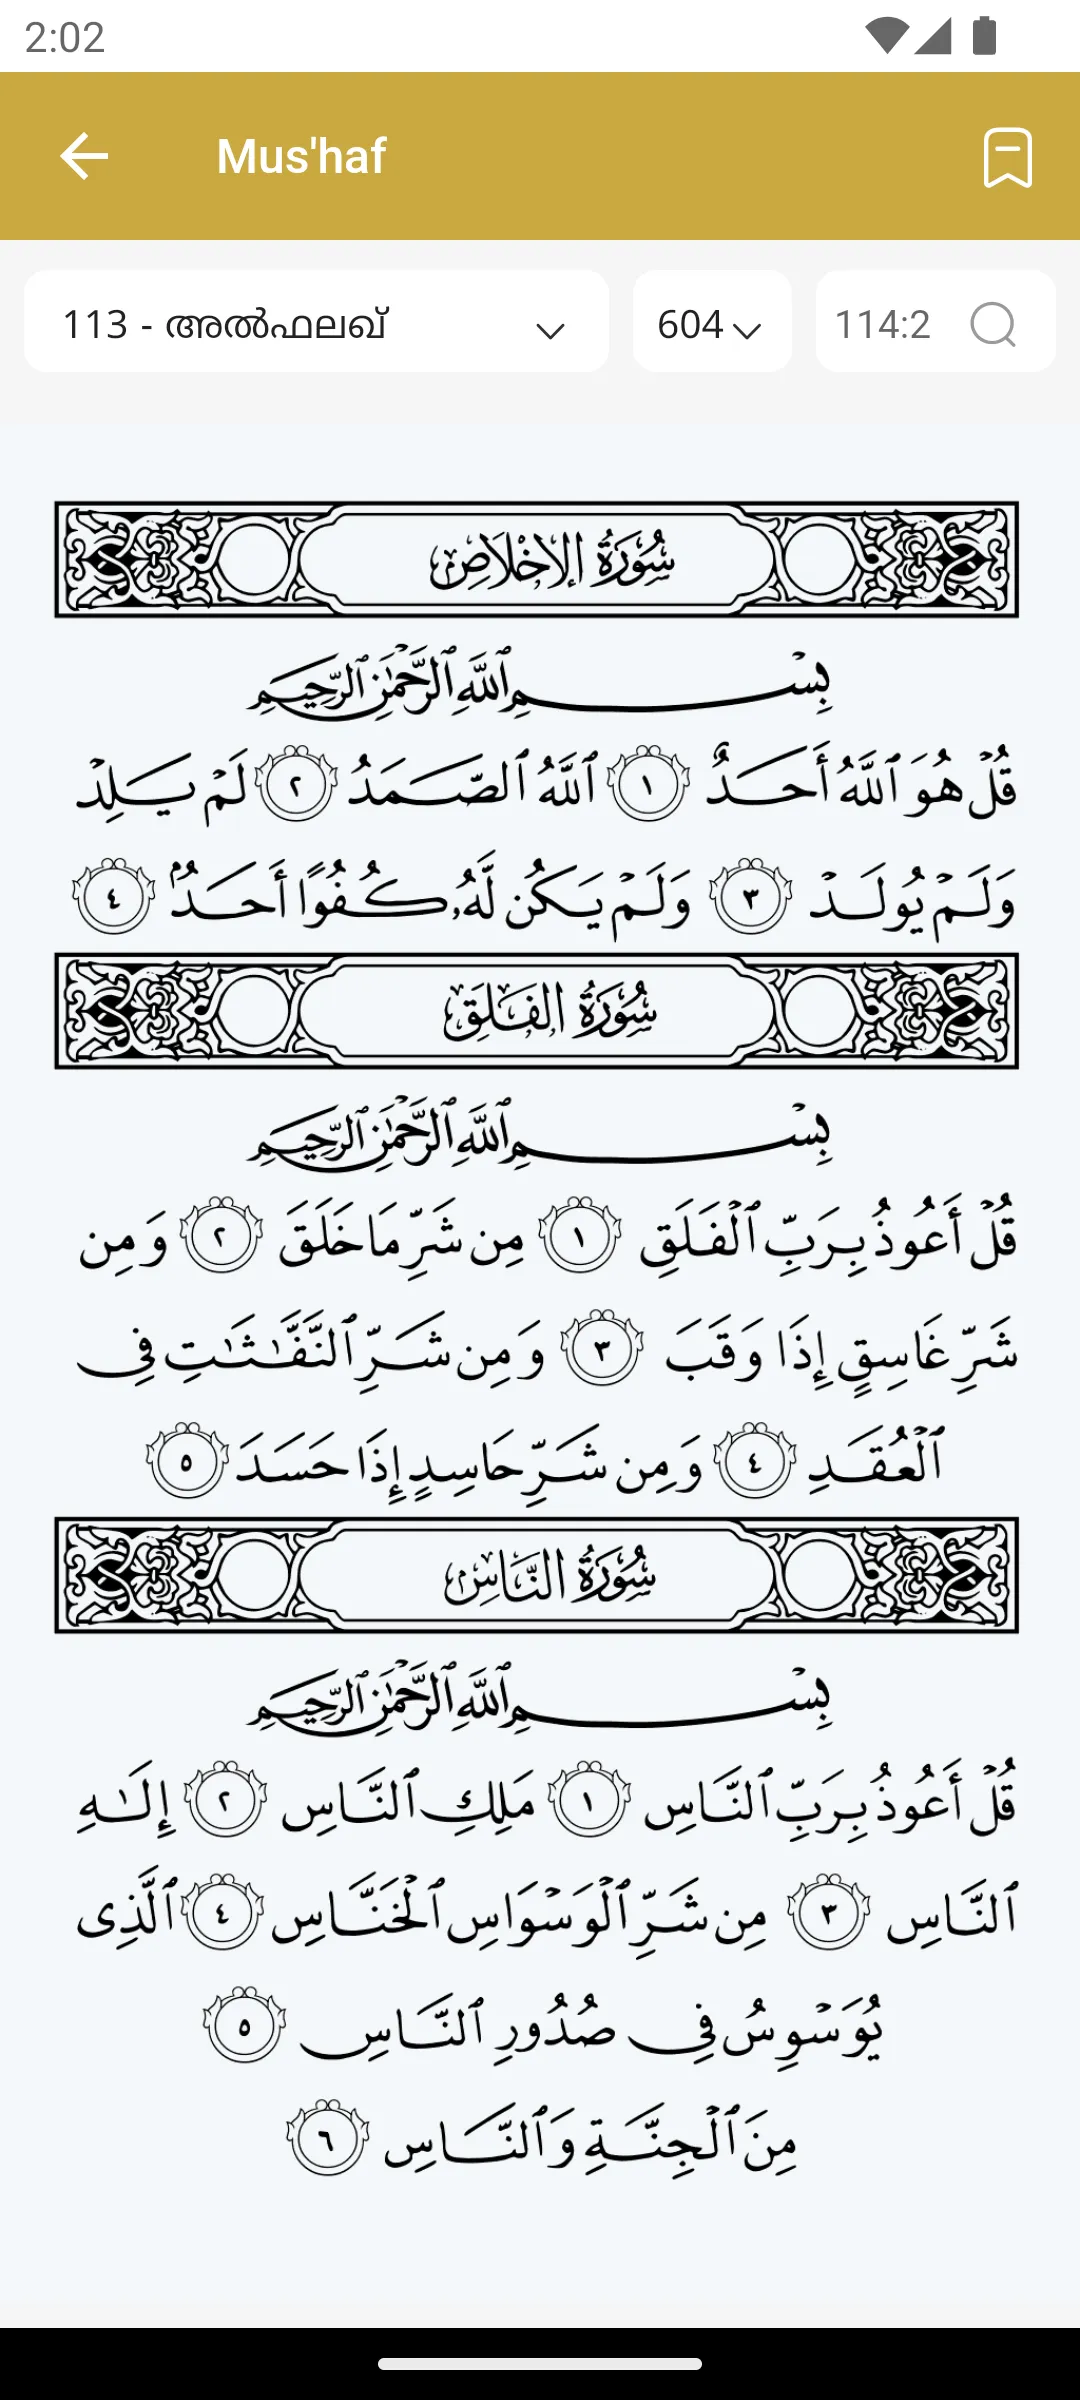 2:02
Mus'haf
113 - അൽഫലഖ്
604
114:2
سُورَةُ الإِخْلَاصِ
بِسْمِ ٱللَّهِ ٱلرَّحْمَٰنِ ٱلرَّحِيمِ
قُلْ هُوَ ٱللَّهُ أَحَدٌ ١ ٱللَّهُ ٱلصَّمَدُ ٢ لَمْ يَلِدْ
وَلَمْ يُولَدْ ٣ وَلَمْ يَكُن لَّهُۥ كُفُوًا أَحَدٌۢ ٤
سُورَةُ الفَلَقِ
بِسْمِ ٱللَّهِ ٱلرَّحْمَٰنِ ٱلرَّحِيمِ
قُلْ أَعُوذُ بِرَبِّ ٱلْفَلَقِ ١ مِن شَرِّ مَا خَلَقَ ٢ وَمِن
شَرِّ غَاسِقٍ إِذَا وَقَبَ ٣ وَمِن شَرِّ ٱلنَّفَّٰثَٰتِ فِى
ٱلْعُقَدِ ٤ وَمِن شَرِّ حَاسِدٍ إِذَا حَسَدَ ٥
سُورَةُ النَّاسِ
بِسْمِ ٱللَّهِ ٱلرَّحْمَٰنِ ٱلرَّحِيمِ
قُلْ أَعُوذُ بِرَبِّ ٱلنَّاسِ ١ مَلِكِ ٱلنَّاسِ ٢ إِلَٰهِ
ٱلنَّاسِ ٣ مِن شَرِّ ٱلْوَسْوَاسِ ٱلْخَنَّاسِ ٤ ٱلَّذِى
يُوَسْوِسُ فِى صُدُورِ ٱلنَّاسِ ٥
مِنَ ٱلْجِنَّةِ وَٱلنَّاسِ ٦